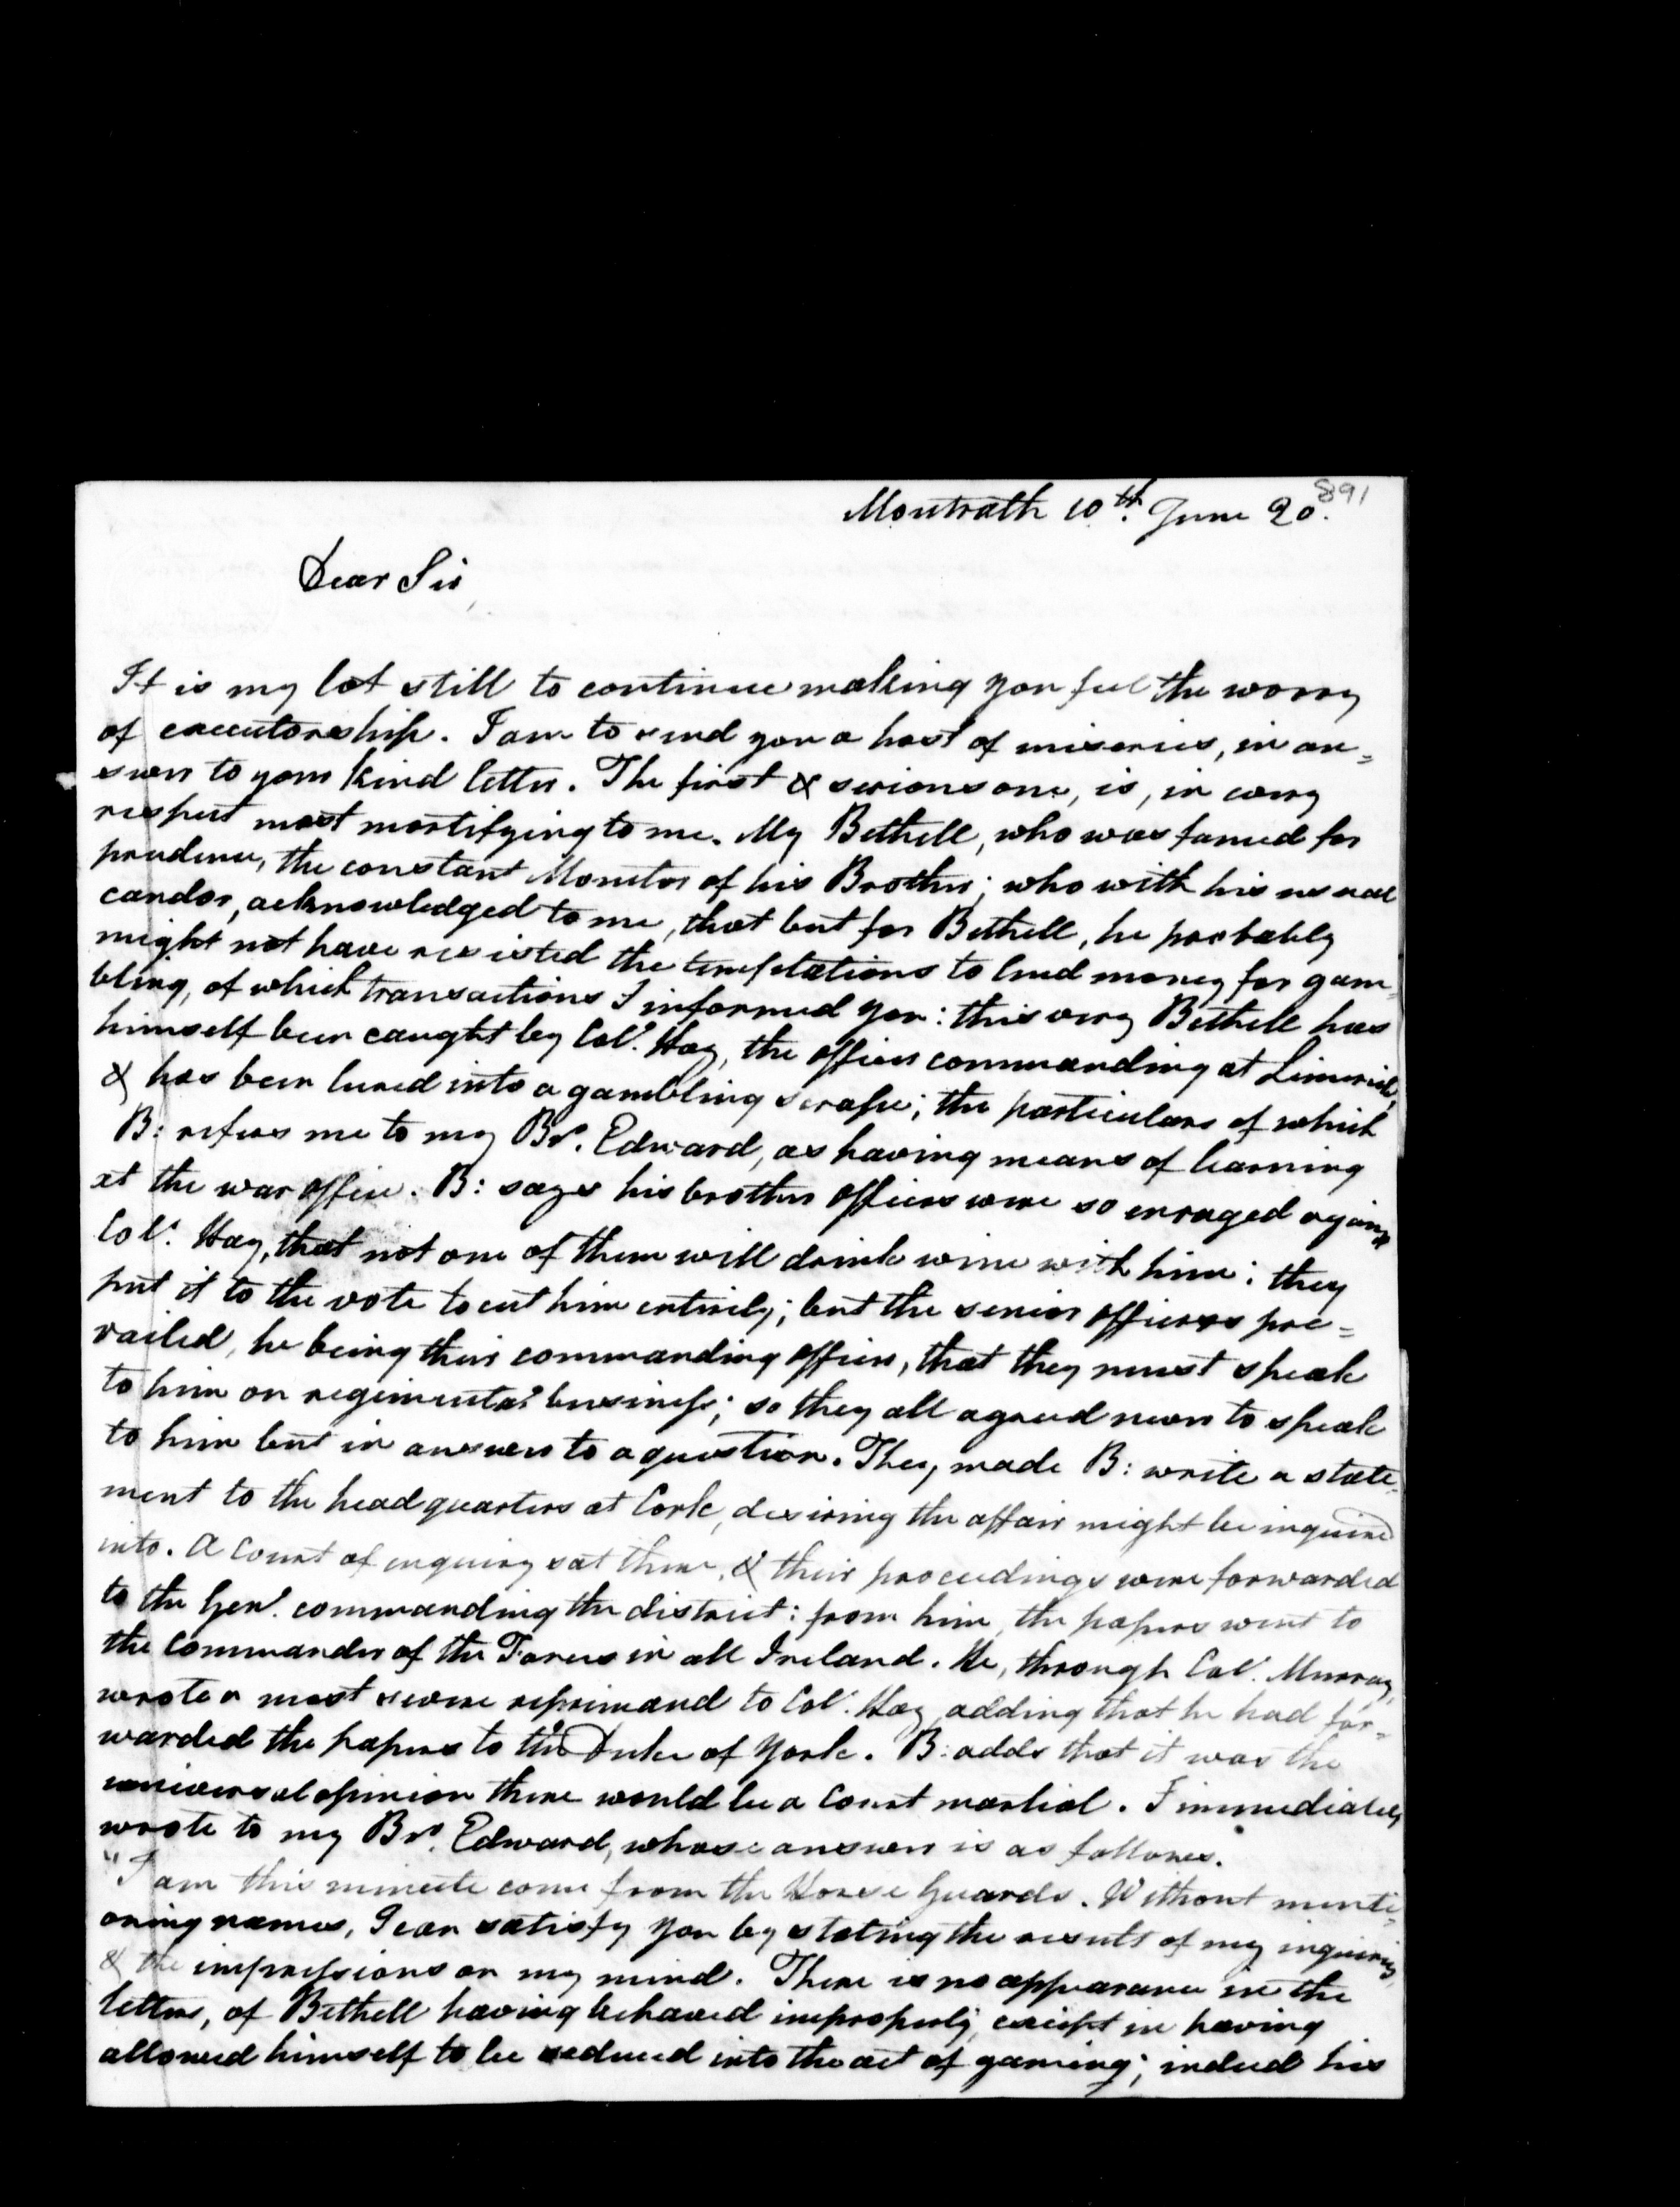 891
Montrath 10th. June 20.
Dear Sir,
It is my lot still to continue making you feel the worry
of executorship. I am to send you a host of miseries, in an=
swer to your kind letter. The first & serious one, is, in every
respect most mortifying to me. My Bethell, who was famed for
prudence, the constant Monitor of his Brother; who with his usual
candor, acknowledged to me, that but for Bethell, he probably
might not have resisted the temptations to lend money for gam=
bling, of which transactions I informed you: this very Bethell has
himself been caught by Col. Hay, the officer commanding at Limerick,
& has been lured into a gambling scrape; the particulars of which
B: refers me to my Br. Edward, as having means of learning
at the war office. B: says his brother officers were so enraged against
Col. Hay, that not one of them will drink wine with him: they
put it to the vote to cut him entirely; but the senior officers pre=
vailed, he being their commanding officer, that they must speak
to him on regimental business; so they all agreed never to speak
to him but in answer to a question. They made B: write a state=
ment to the head quarters at Cork, desiring the affair might be inquired
into. A Court of enquiry sat there, & their proceedings were forwarded
to the Genl. commanding the district: from him, the papers went to
the Commander of the Forces in all Ireland. He, through Col. Murray,
wrote a most severe reprimand to Col. Hay, adding that he had for=
warded the papers to the Duke of York. B: adds that it was the
universal opinion there would be a Court martial. I immediately
wrote to my Br. Edward, whose answer is as follows.
"I am this minute come from the Horse Guards. Without menti=
oning names, I can satisfy you by stating the results of my inquiries,
& the impressions on my mind. There is no appearance in the
letters, of Bethell having behaved improperly, except in having
allowed himself to be seduced into the act of gaming; indeed his